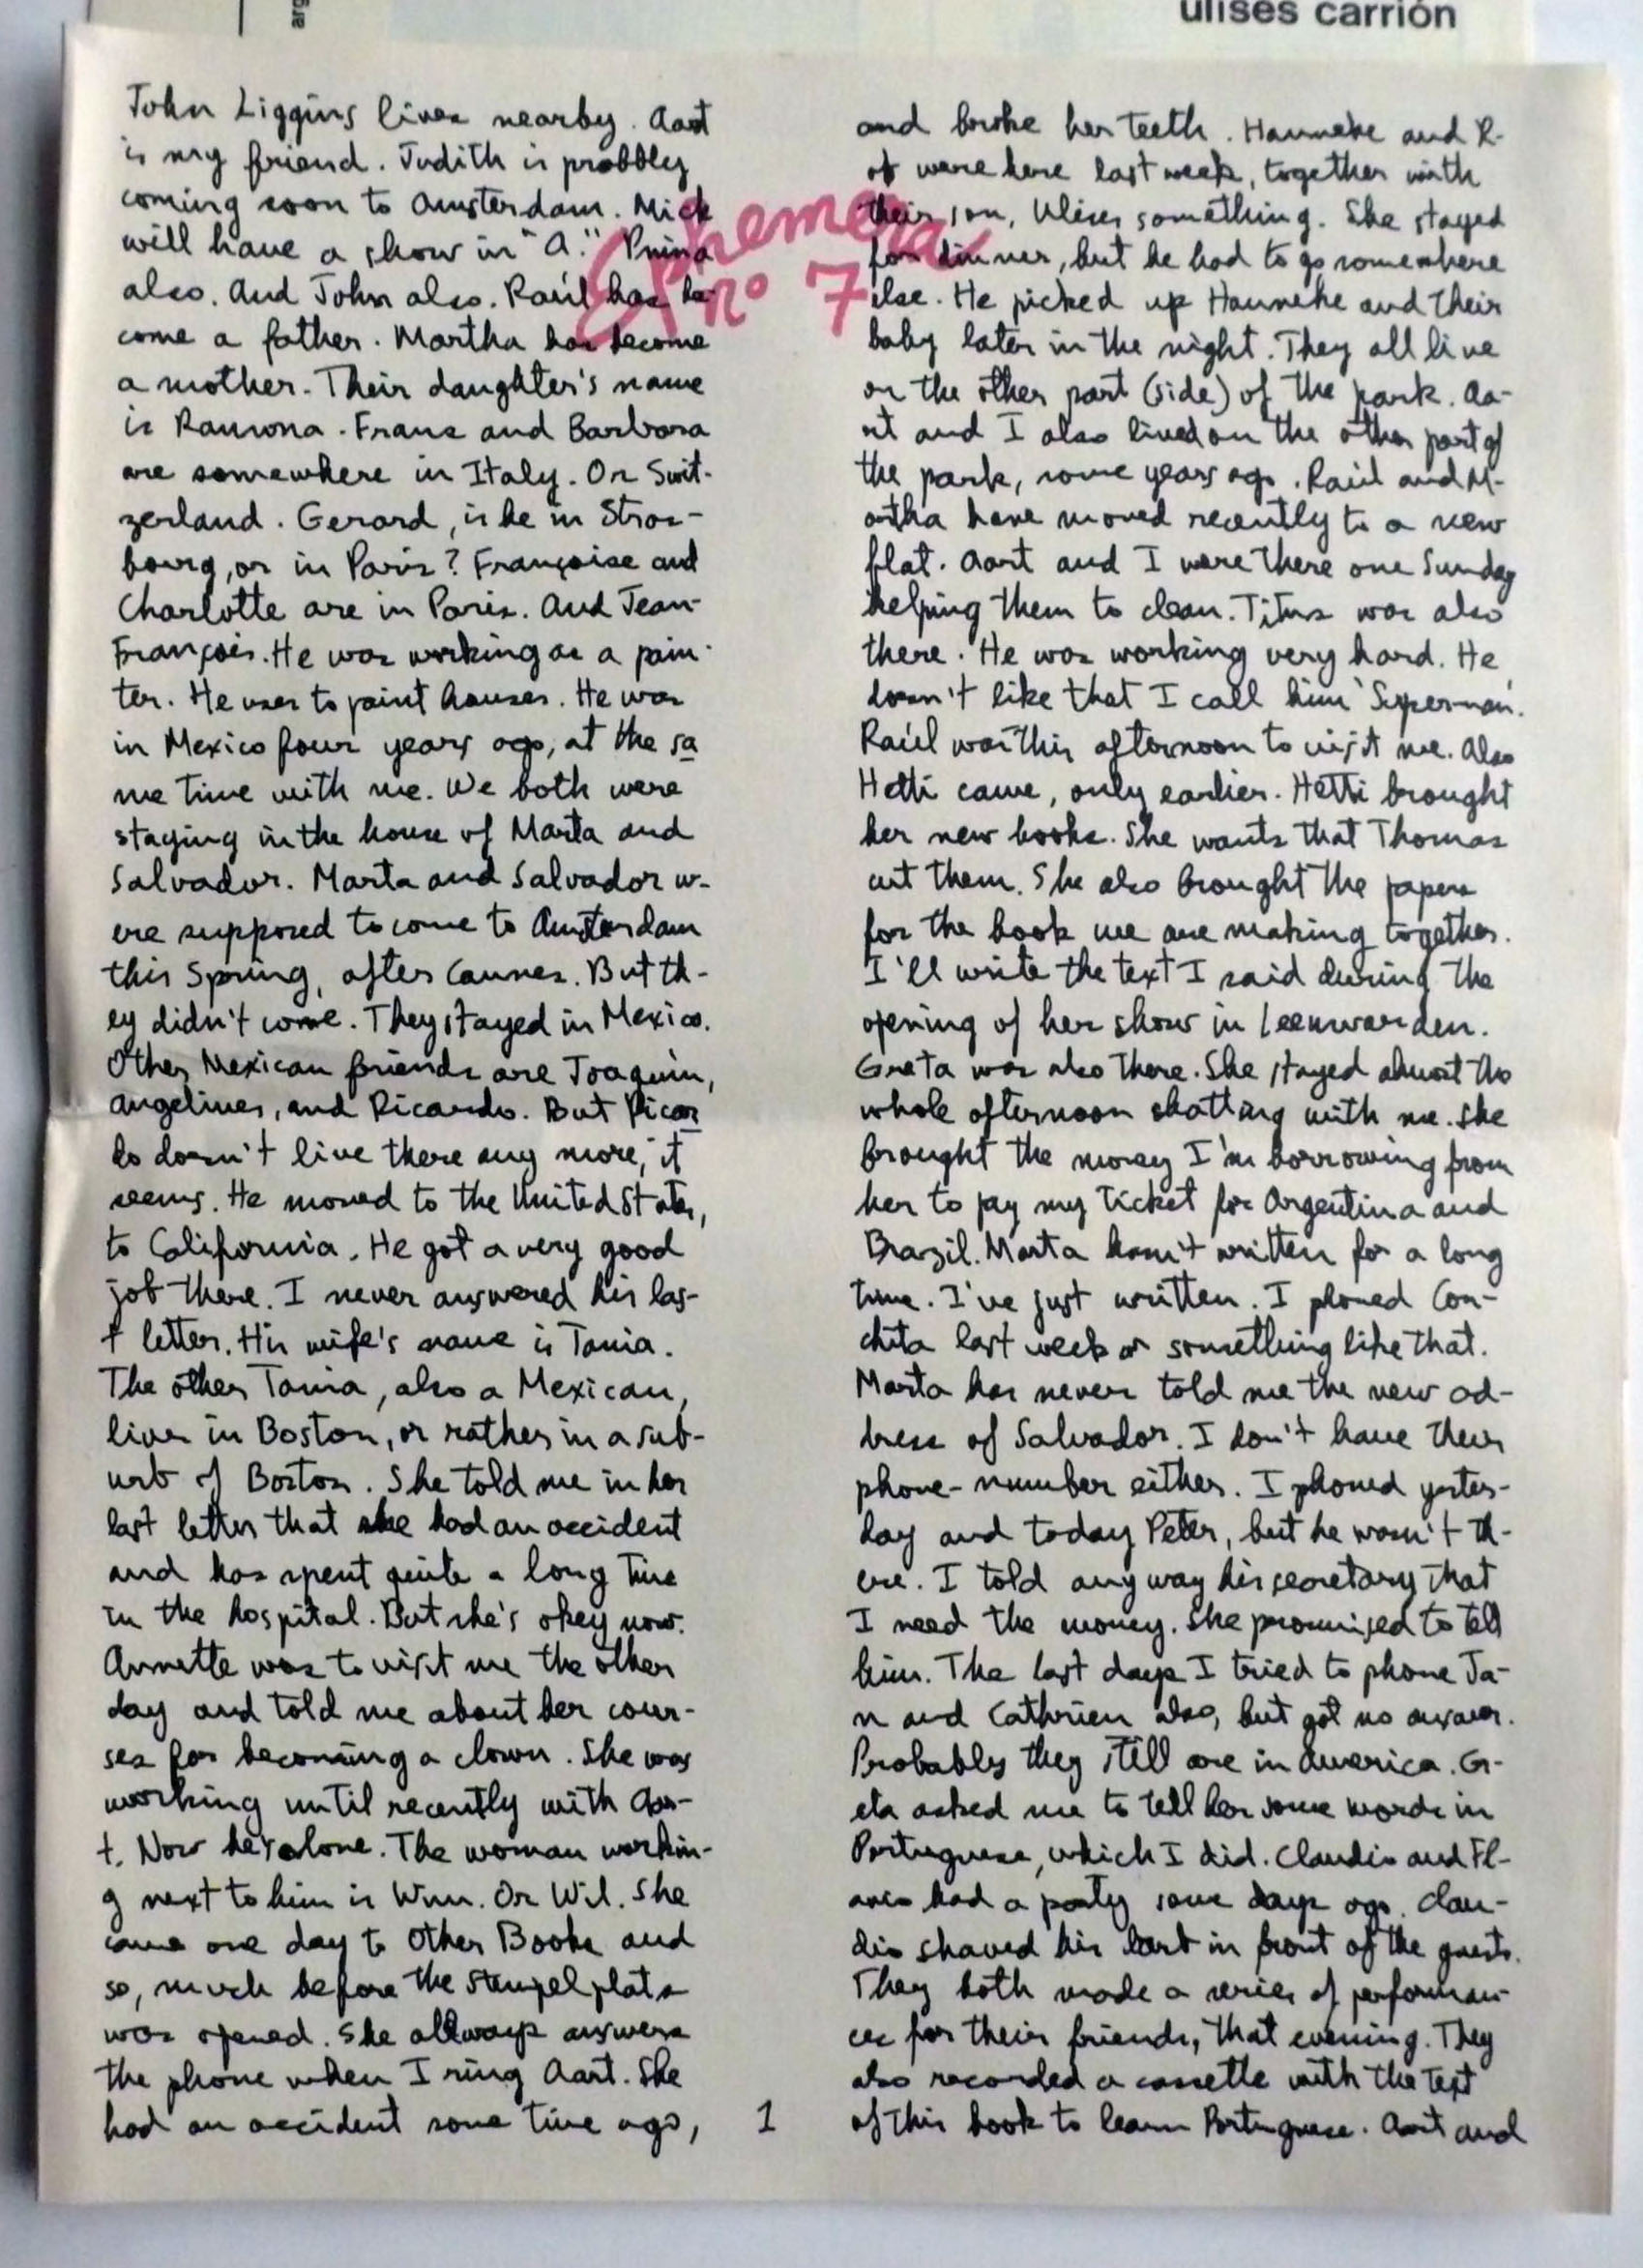 ulises carrión
John Liggins lives nearby. Aart
is my friend. Judith is probbly
coming soon to Amsterdam. Mick
will have a show in "A." Pnina
also. And John also. Raúl has be-
come a father. Martha has become
a mother. Their daughter's name
is Ramona. Frans and Barbara
are somewhere in Italy. Or Swit-
zerland. Gerard, is he in Stras-
bourg, or in Paris? Françoise and
Charlotte are in Paris. And Jean-
François. He was working as a pain-
ter. He uses to paint houses. He was
in Mexico four years ago, at the sa
me time with me. We both were
staying in the house of Marta and
Salvador. Marta and Salvador w-
ere supposed to come to Amsterdam
this Spring, after Cannes. But th-
ey didn't come. They stayed in Mexico.
Other Mexican friends are Joaquin,
Angelines, and Ricardo. But Ricar
do doesn't live there any more, it
seems. He moved to the United States,
to California. He got a very good
job there. I never answered his las-
t letter. His wife's name is Tania.
The other Tania, also a Mexican,
lives in Boston, or rather in a sub-
urb of Boston. She told me in her
last letter that she had an accident
and has spent quite a long time
in the hospital. But she's okey now.
Annette was to visit me the other
day and told me about her cour-
ses for becoming a clown. She was
working until recently with Aar-
t. Now he's alone. The woman workin-
g next to him is Wim. Or Wil. She
came one day to Other Books and
so, much before the Stempelplats
was opened. She allways answers
the phone when I ring Aart. She
had an accident some time ago,
1
Ephemera
nº 7
and broke her teeth. Hanneke and R-
ob were here last week, together with
their son, Ulises something. She stayed
for dinner, but he had to go somewhere
else. He picked up Hanneke and their
baby later in the night. They all live
on the other part (side) of the park. Aa-
rt and I also lived on the other part of
the park, some years ago. Raúl and M-
artha have moved recently to a new
flat. Aart and I were there one Sunday
helping them to clean. Titus was also
there. He was working very hard. He
doesn't like that I call him 'Superman'.
Raúl was this afternoon to visit me. Also
Hetti came, only earlier. Hetti brought
her new books. She wants that Thomas
cut them. She also brought the papers
for the book we are making together.
I'll write the text I said during the
opening of her show in Leeuwarden.
Greta was also there. She stayed almost the
whole afternoon chatting with me. She
brought the money I'm borrowing from
her to pay my ticket for Argentina and
Brazil. Marta hasn't written for a long
time. I've just written. I phoned Con-
chita last week or something like that.
Marta has never told me the new ad-
dress of Salvador. I don't have their
phone-number either. I phoned yester-
day and today Peter, but he wasn't th-
ere. I told anyway his secretary that
I need the money. She promised to tell
him. The last days I tried to phone Ja-
n and Cathrien also, but got no answer.
Probably they still are in America. Gr-
eta asked me to tell her some words in
Portuguese, which I did. Claudio and Fl-
avio had a party some days ago. Clau-
dio shaved his beard in front of the guests.
They both made a series of performan-
ces for their friends, that evening. They
also recorded a cassette with the text
of this book to learn Portuguese. Aart and